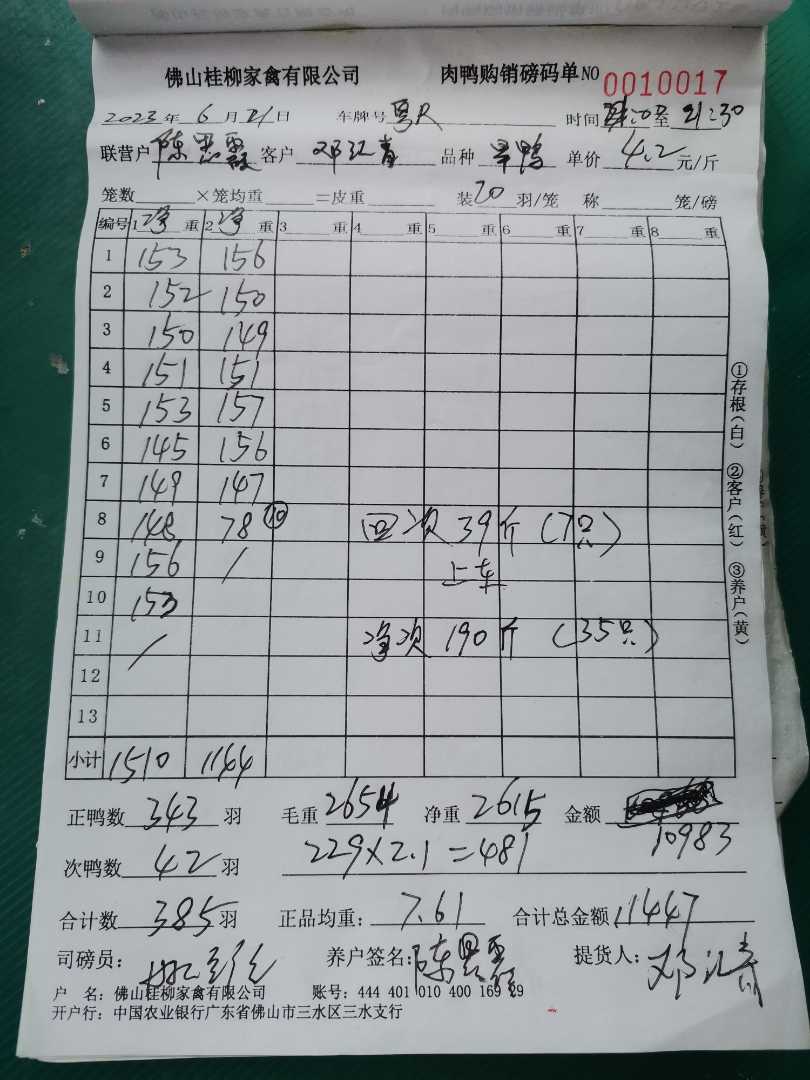 佛山桂柳家禽有限公司 肉鸭购销磅码单NO 0010017
2023年6月21日 车牌号 粤R 时间 至 21:30
联营户 陈思霞 客户 邓江青 品种 单价 4.2 元/斤
笼数 ×笼均重 =皮重 装20羽/笼 称 笼/磅
编号 1净重 2净重 3 重 4 重 5 重 6 重 7 重 8 重
1 153 156
2 152 150
3 150 149
4 151 151
5 153 157
6 145 156
7 149 147
8 148 78 ⑩ 回次 39斤(7只)
9 156 / 上车
10 153
11 / 净次 190斤(35只)
12
13
小计 1510 1144
①存根(白) ②客户(红) ③养户(黄)
正鸭数 343 羽 毛重 2654 净重 2615 金额 10983
次鸭数 42 羽 229×2.1=481
合计数 385 羽 正品均重: 7.61 合计总金额 11447
司磅员: 养户签名: 陈思霞 提货人: 邓江青
户 名: 佛山桂柳家禽有限公司 账号: 444 401 010 400 169 29
开户行: 中国农业银行广东省佛山市三水区三水支行